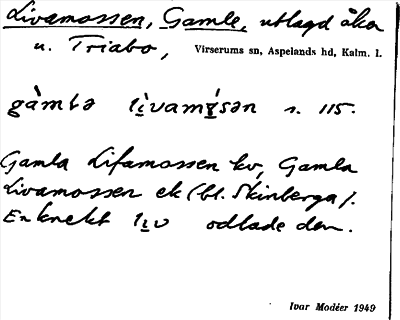 Livamossen, Gamle, utlagd åker
u. Triabo, Virserums sn, Aspelands hd, Kalm. l.
s. 115.
Gamla Lifamossen kv, Gamla
Livamossen ek (bl. Skinberga).
En knekt odlade den.
Ivar Modéer 1949